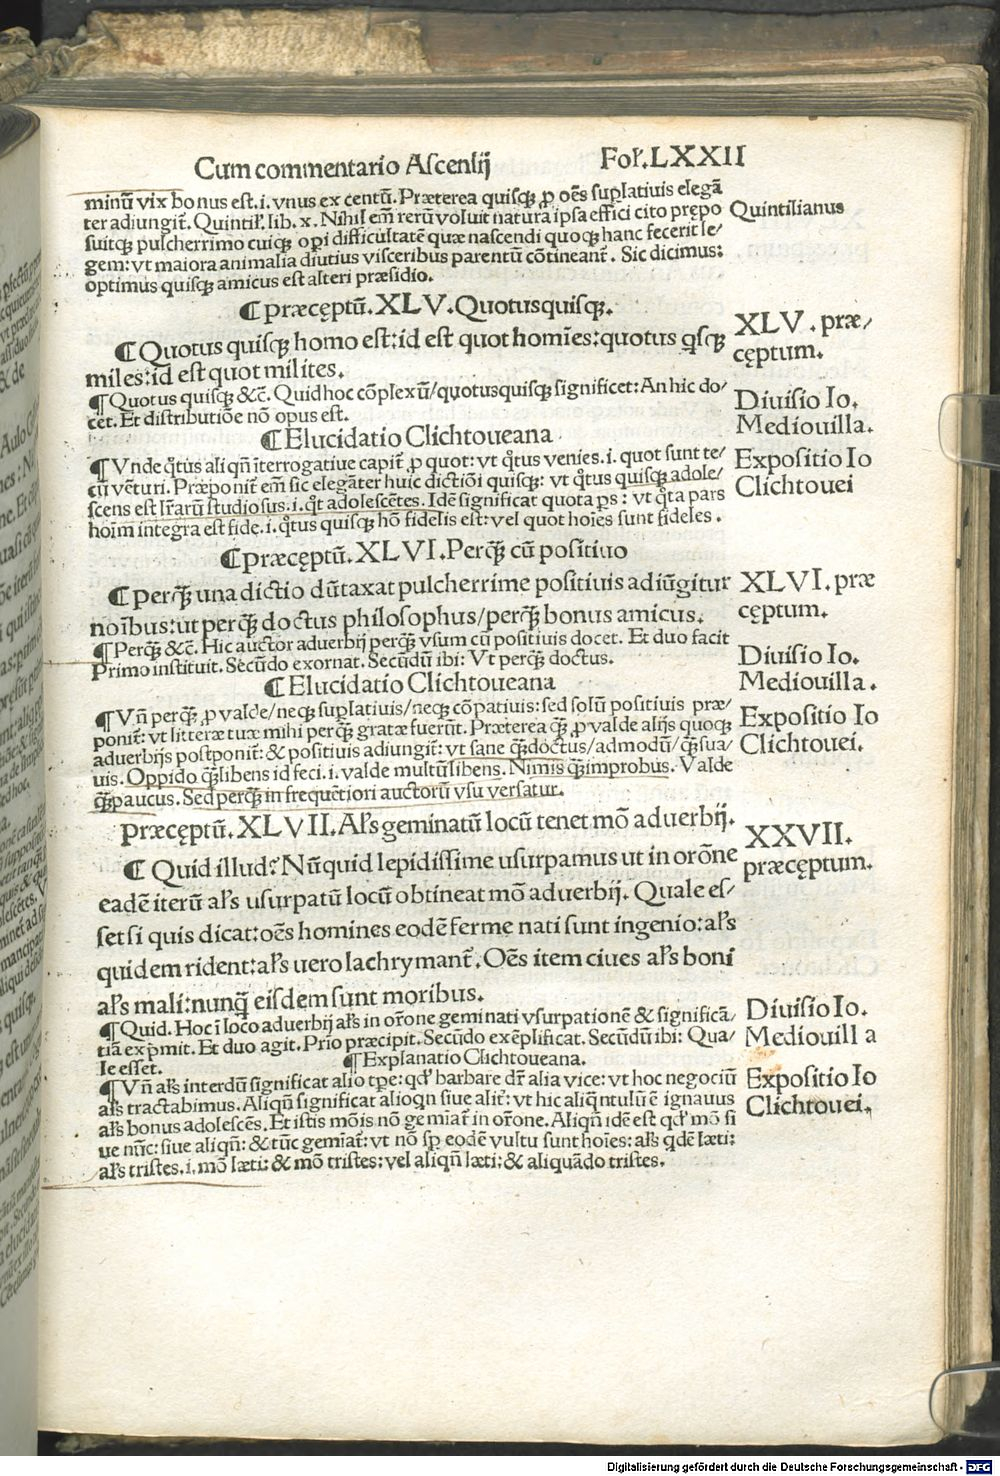 Cum commentario Ascensij Fol. LXXII
minū vix bonus est.i.vnus ex centū. Præterea quisq; ꝓ oēs suꝑlatiuis elegā
ter adiungit̄. Quintil. lib. x. Nihil em̄ rerū voluit natura ipsa effici cito prępo
suitq; pulcherrimo cuiq; oꝑi difficultatē quæ nascendi quoq; hanc fecerit le/
gem: vt maiora animalia diutius visceribus parentū cōtineant̄. Sic dicimus:
optimus quisq; amicus est alteri præsidio.
Quintilianus
¶ præcęptū. XLV. Quotusquisq;.
¶ Quotus quisq; homo est: id est quot homīes: quotus q̄sq;
miles: id est quot milites.
XLV. præ/
cęptum.
¶ Quotus quisq; &c̄. Quid hoc cōplexū/quotusquisq; significet: An hic do/
cet. Et distributiōe nō opus est.
Diuisio Io.
Mediouilla.
¶ Elucidatio Clichtoueana
¶ Vnde q̄tus aliqn̄ īterrogatiue capit̄ ꝓ quot: vt q̄tus venies.i. quot sunt te/
cū vēturi. Præponit̄ em̄ sic elegāter huic dictiōi quisq;: vt q̄tus quisq; adole/
scens est lr̄arū studiosus.i. q̄t adolescētes. Idē significat quota ꝑs: vt q̄ta pars
hoīm integra est fide.i. q̄tus quisq; hō fidelis est: vel quot hoīes sunt fideles.
Expositio Io
Clichtouei
¶ præcęptū. XLVI. Perq̄ cū positiuo
¶ Perq̄ una dictio dūtaxat pulcherrime positiuis adiūgitur
noībus: ut perq̄ doctus philosophus/perq̄ bonus amicus.
XLVI. præ
cęptum.
¶ Perq̄ &c̄. Hic auctor aduerbij perq̄ vsum cū positiuis docet. Et duo facit
Primo instituit. Secūdo exornat. Secūdū ibi: Vt perq̄ doctus.
Diuisio Io.
Mediouilla.
¶ Elucidatio Clichtoueana
¶ Vn̄ perq̄ ꝓ valde/neq; suꝑlatiuis/neq; cōpatiuis: sed solū positiuis præ/
ponit̄: vt litteræ tuæ mihi perq̄ gratæ fuerūt. Præterea q̄ ꝓ valde alijs quoq;
aduerbijs postponit̄: & positiuis adiungit̄: vt sane q̄ doctus/admodū/q̄ sua/
uis. Oppido q̄ libens id feci.i. valde multū libens. Nimis q̄ improbus. Valde
q̄ paucus. Sed perq̄ in frequētiori auctorū vsu versatur.
Expositio Io
Clichtouei.
præcęptū. XLVII. Al's geminatū locū tenet mō aduerbij.
¶ Quid illud? Nūquid lepidissime usurpamus ut in orōne
eadē iterū al's usurpatū locū obtineat mō aduerbij. Quale es/
set si quis dicat: oēs homines eodē ferme nati sunt ingenio: al's
quidem rident: al's uero lachrymant̄. Oēs item ciues al's boni
al's mali: nunq̄ eisdem sunt moribus.
XXVII.
præceptum.
¶ Quid. Hoc ī loco aduerbij al's in orōne geminati vsurpationē & significā/
tiā exp̄mit. Et duo agit. Prīo præcipit. Secūdo exēplificat. Secūdū ibi: Qua/
le esset.
Diuisio Io.
Mediouill a
¶ Explanatio Clichtoueana.
¶ Vn̄ al's interdū significat alio tꝑe: qd' barbare dr̄ alia vice: vt hoc negociū
al's tractabimus. Aliqn̄ significat alioqn siue alit̄: vt hic aliq̄ntulū ē ignauus
al's bonus adolescēs, Et istis mōis nō gemiat̄ in orōne. Aliqn̄ idē est qd' mō si
ue nūc: siue aliqn̄: & tūc gemiat̄: vt nō sꝑ eodē vultu sunt hoīes: al's qdē læti:
al's tristes.i. mō læti: & mō tristes: vel aliqn̄ læti: & aliquādo tristes.
Expositio Io
Clichtouei.
Digitalisierung gefördert durch die Deutsche Forschungsgemeinschaft - DFG